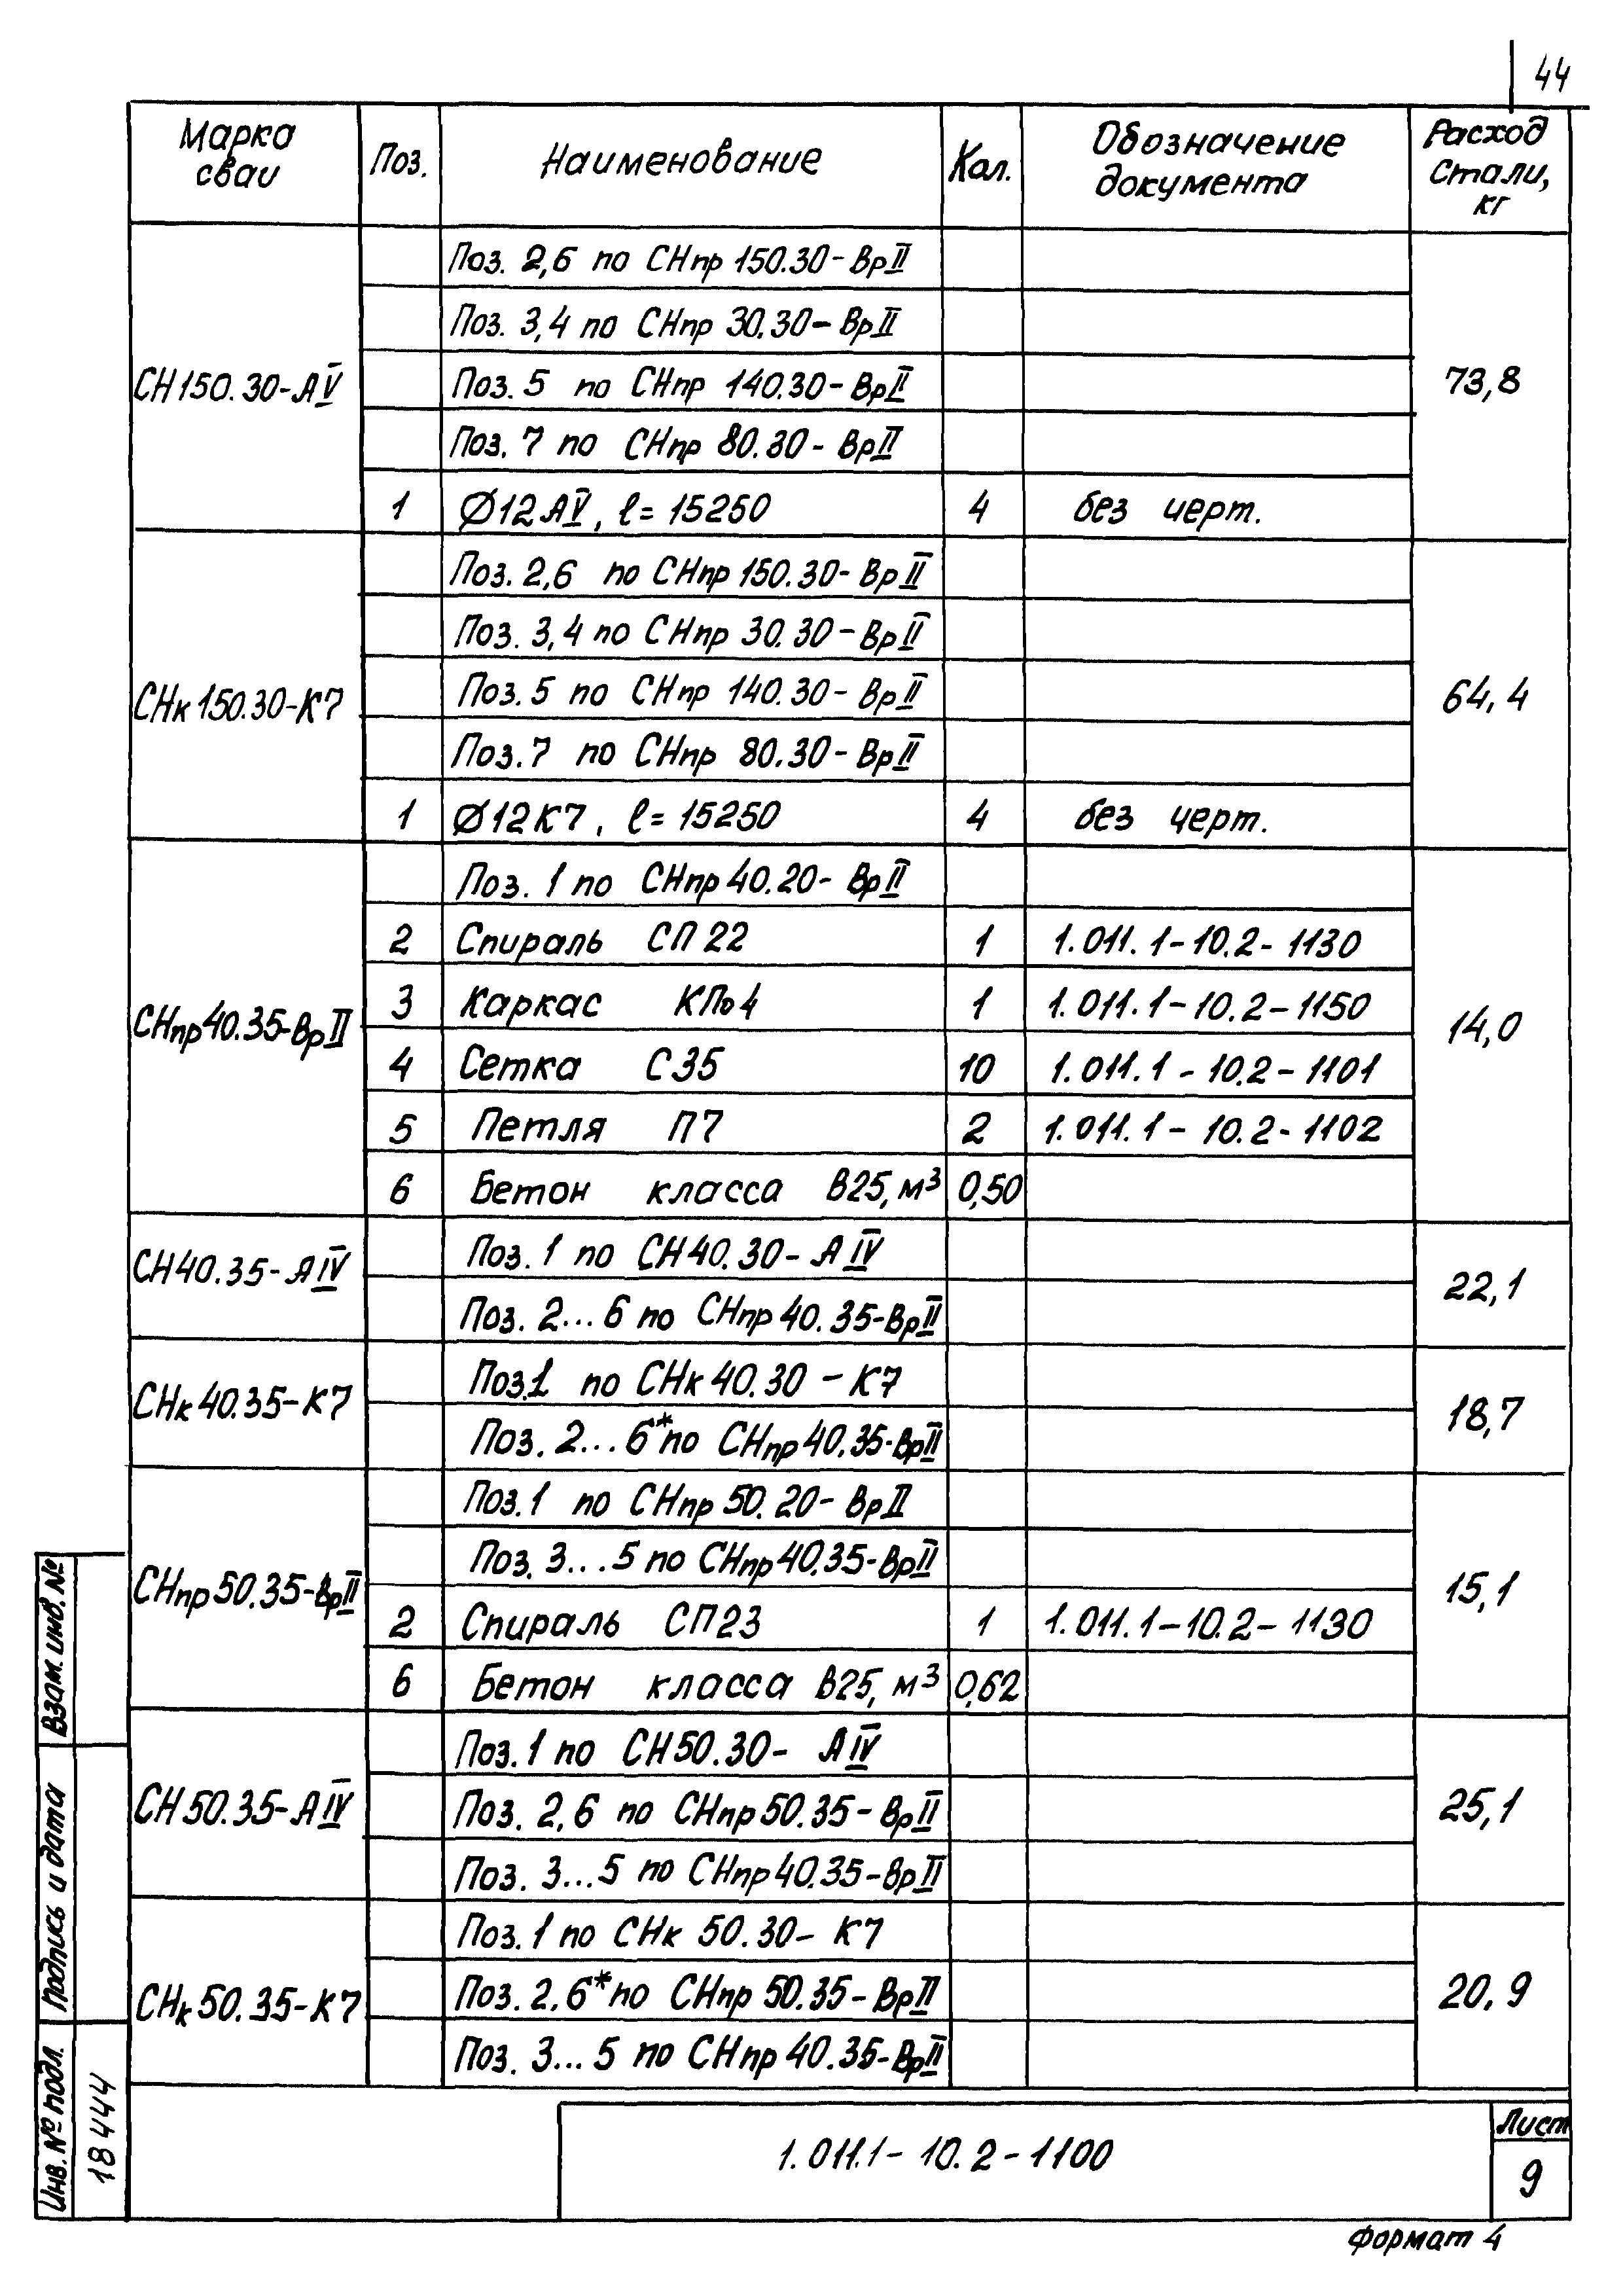 44
Марка сваи Поз. Наименование Кол. Обозначение документа Расход стали, кг
Поз. 2,6 по СНпр 150.30-ВрII
Поз. 3,4 по СНпр 30.30-ВрII
СН150.30-АV Поз. 5 по СНпр 140.30-ВрII 73,8
Поз. 7 по СНпр 80.30-ВрII
1 Ø12АV, ℓ=15250 4 без черт.
Поз. 2,6 по СНпр 150.30-ВрII
Поз. 3,4 по СНпр 30.30-ВрII
СНк150.30-К7 Поз. 5 по СНпр 140.30-ВрII 64,4
Поз. 7 по СНпр 80.30-ВрII
1 Ø12К7, ℓ=15250 4 без черт.
Поз. 1 по СНпр40.20-ВрII
2 Спираль СП22 1 1.011.1-10.2-1130
3 Каркас КПо4 1 1.011.1-10.2-1150
СНпр40.35-ВрII 14,0
4 Сетка С35 10 1.011.1-10.2-1101
5 Петля П7 2 1.011.1-10.2-1102
6 Бетон класса В25, м³ 0,50
СН40.35-АIV Поз. 1 по СН40.30-АIV 22,1
Поз. 2...6 по СНпр40.35-ВрII
СНк40.35-К7 Поз.1 по СНк40.30-К7 18,7
Поз. 2...6* по СНпр40.35-ВрII
Поз.1 по СНпр50.20-ВрII
Поз. 3...5 по СНпр40.35-ВрII
СНпр50.35-ВрII 15,1
2 Спираль СП23 1 1.011.1-10.2-1130
6 Бетон класса В25, м³ 0,62
Поз.1 по СН50.30-АIV
СН50.35-АIV Поз. 2,6 по СНпр50.35-ВрII 25,1
Поз. 3...5 по СНпр40.35-ВрII
Поз.1 по СНк 50.30-К7
СНк50.35-К7 Поз. 2,6* по СНпр 50.35-ВрII 20,9
Поз. 3...5 по СНпр40.35-ВрII
Взам. инв. №
Подпись и дата
Инв. № подл.
18444
1.011.1-10.2-1100
Лист
9
Формат 4